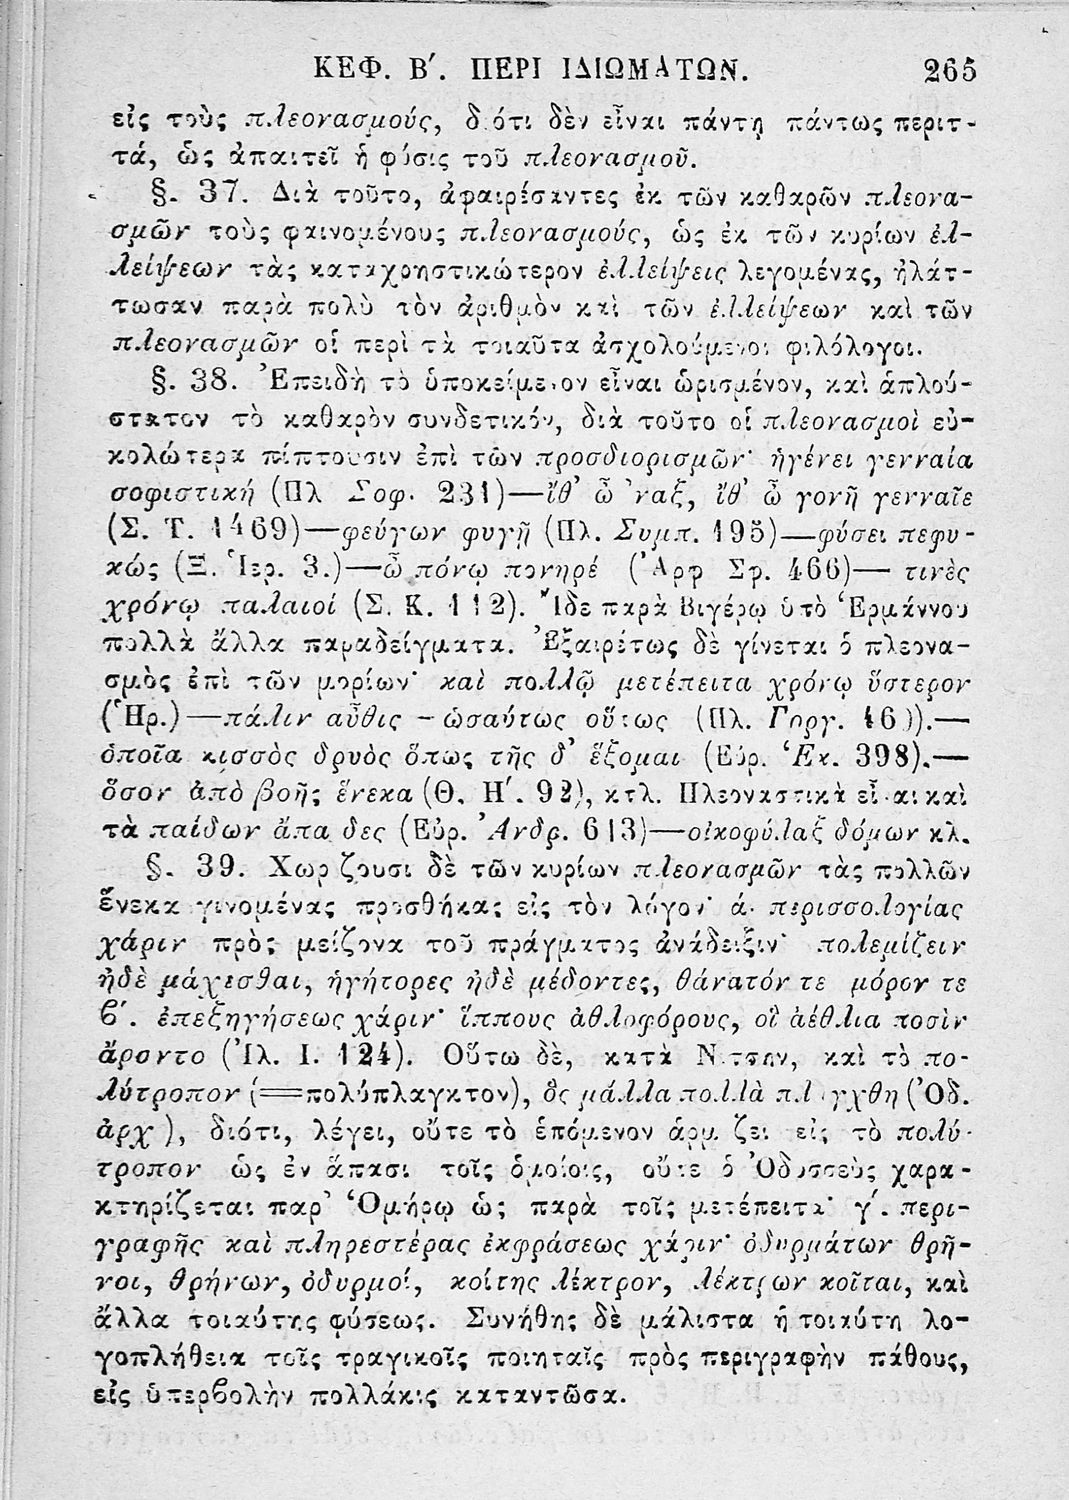 ΚΕΦ. Β΄. ΠΕΡΙ ΙΔΙΩΜΑΤΩΝ. 265
εἰς τοὺς πλεονασμούς, διότι δὲν εἶναι πάντῃ πάντως περιτ-
τά, ὡς ἀπαιτεῖ ἡ φύσις τοῦ πλεονασμοῦ.
§. 37. Διὰ τοῦτο, ἀφαιρέσαντες ἐκ τῶν καθαρῶν πλεονα-
σμῶν τοὺς φαινομένους πλεονασμούς, ὡς ἐκ τῶν κυρίων ἐλ-
λείψεων τὰς καταχρηστικώτερον ἐλλείψεις λεγομένας, ἠλάτ-
τωσαν παρὰ πολὺ τὸν ἀριθμὸν καὶ τῶν ἐλλείψεων καὶ τῶν
πλεονασμῶν οἱ περὶ τὰ τοιαῦτα ἀσχολούμενοι φιλόλογοι.
§. 38. Ἐπειδὴ τὸ ὑποκείμενον εἶναι ὡρισμένον, καὶ ἁπλού-
στατον τὸ καθαρὸν συνδετικόν, διὰ τοῦτο οἱ πλεονασμοὶ εὐ-
κολώτερα πίπτουσιν ἐπὶ τῶν προσδιορισμῶν· ἡγένει γενναία
σοφιστική (Πλ Σοφ. 231)—ἴθ' ὦ 'ναξ, ἴθ' ὦ γονῇ γενναῖε
(Σ. Τ. 1469)—φεύγων φυγῇ (Πλ. Συμπ. 195)—φύσει πεφυ-
κώς (Ξ. Ἱερ. 3.)—ὦ πόνῳ πονηρέ (Ἀρφ Σφ. 466)— τινὲς
χρόνῳ παλαιοί (Σ. Κ. 112). Ἴδε παρὰ Βιγέρῳ ὑπὸ Ἑρμάννου
πολλὰ ἄλλα παραδείγματα. Ἐξαιρέτως δὲ γίνεται ὁ πλεονα-
σμὸς ἐπὶ τῶν μορίων· καὶ πολλῷ μετέπειτα χρόνῳ ὕστερον
(Ἡρ.)—πάλιν αὖθις – ὡσαύτως οὕτως (Πλ. Γοργ. 460).—
ὁποῖα κισσὸς δρυὸς ὅπως τῆς δ' ἕξομαι (Εὐρ. Ἑκ. 398).—
ὅσον ἀπὸ βοῆς ἕνεκα (Θ. Η΄. 92), κτλ. Πλεοναστικὰ εἶναι καὶ
τὰ παίδων ἄπαιδες (Εὐρ. Ἀνδρ. 613)—οἰκοφύλαξ δόμων κλ.
§. 39. Χωρίζουσι δὲ τῶν κυρίων πλεονασμῶν τὰς πολλῶν
ἕνεκα γινομένας προσθήκας εἰς τὸν λόγον· ά· περισσολογίας
χάριν πρὸς μείζονα τοῦ πράγματος ἀνάδειξιν· πολεμίζειν
ἠδὲ μάχεσθαι, ἡγήτορες ἠδὲ μέδοντες, θάνατόν τε μόρον τε
β΄. ἐπεξηγήσεως χάριν· ἵππους ἀθλοφόρους, οἳ ἀέθλια ποσὶν
ἄροντο (Ἰλ. Ι. 124). Οὕτω δὲ, κατὰ Νίτσην, καὶ τὸ πο-
λύτροπον (=πολύπλαγκτον), ὃς μάλλα πολλὰ πλάγχθη (Ὀδ.
ἀρχ), διότι, λέγει, οὔτε τὸ ἑπόμενον ἁρμόζει εἰς τὸ πολύ-
τροπον ὡς ἐν ἅπασι τοῖς ὁμοίοις, οὔτε ὁ Ὀδυσσεὺς χαρα-
κτηρίζεται παρ' Ὁμήρῳ ὡς παρὰ τοῖς μετέπειτα· γ΄. περι-
γραφῆς καὶ πληρεστέρας ἐκφράσεως χάριν· ὀδυρμάτων θρῆ-
νοι, θρήνων, ὀδυρμοί, κοίτης λέκτρον, λέκτρων κοῖται, καὶ
ἄλλα τοιαύτης φύσεως. Συνήθης δὲ μάλιστα ἡ τοιαύτη λο-
γοπλήθεια τοῖς τραγικοῖς ποιηταῖς πρὸς περιγραφὴν πάθους,
εἰς ὑπερβολὴν πολλάκις καταντῶσα.